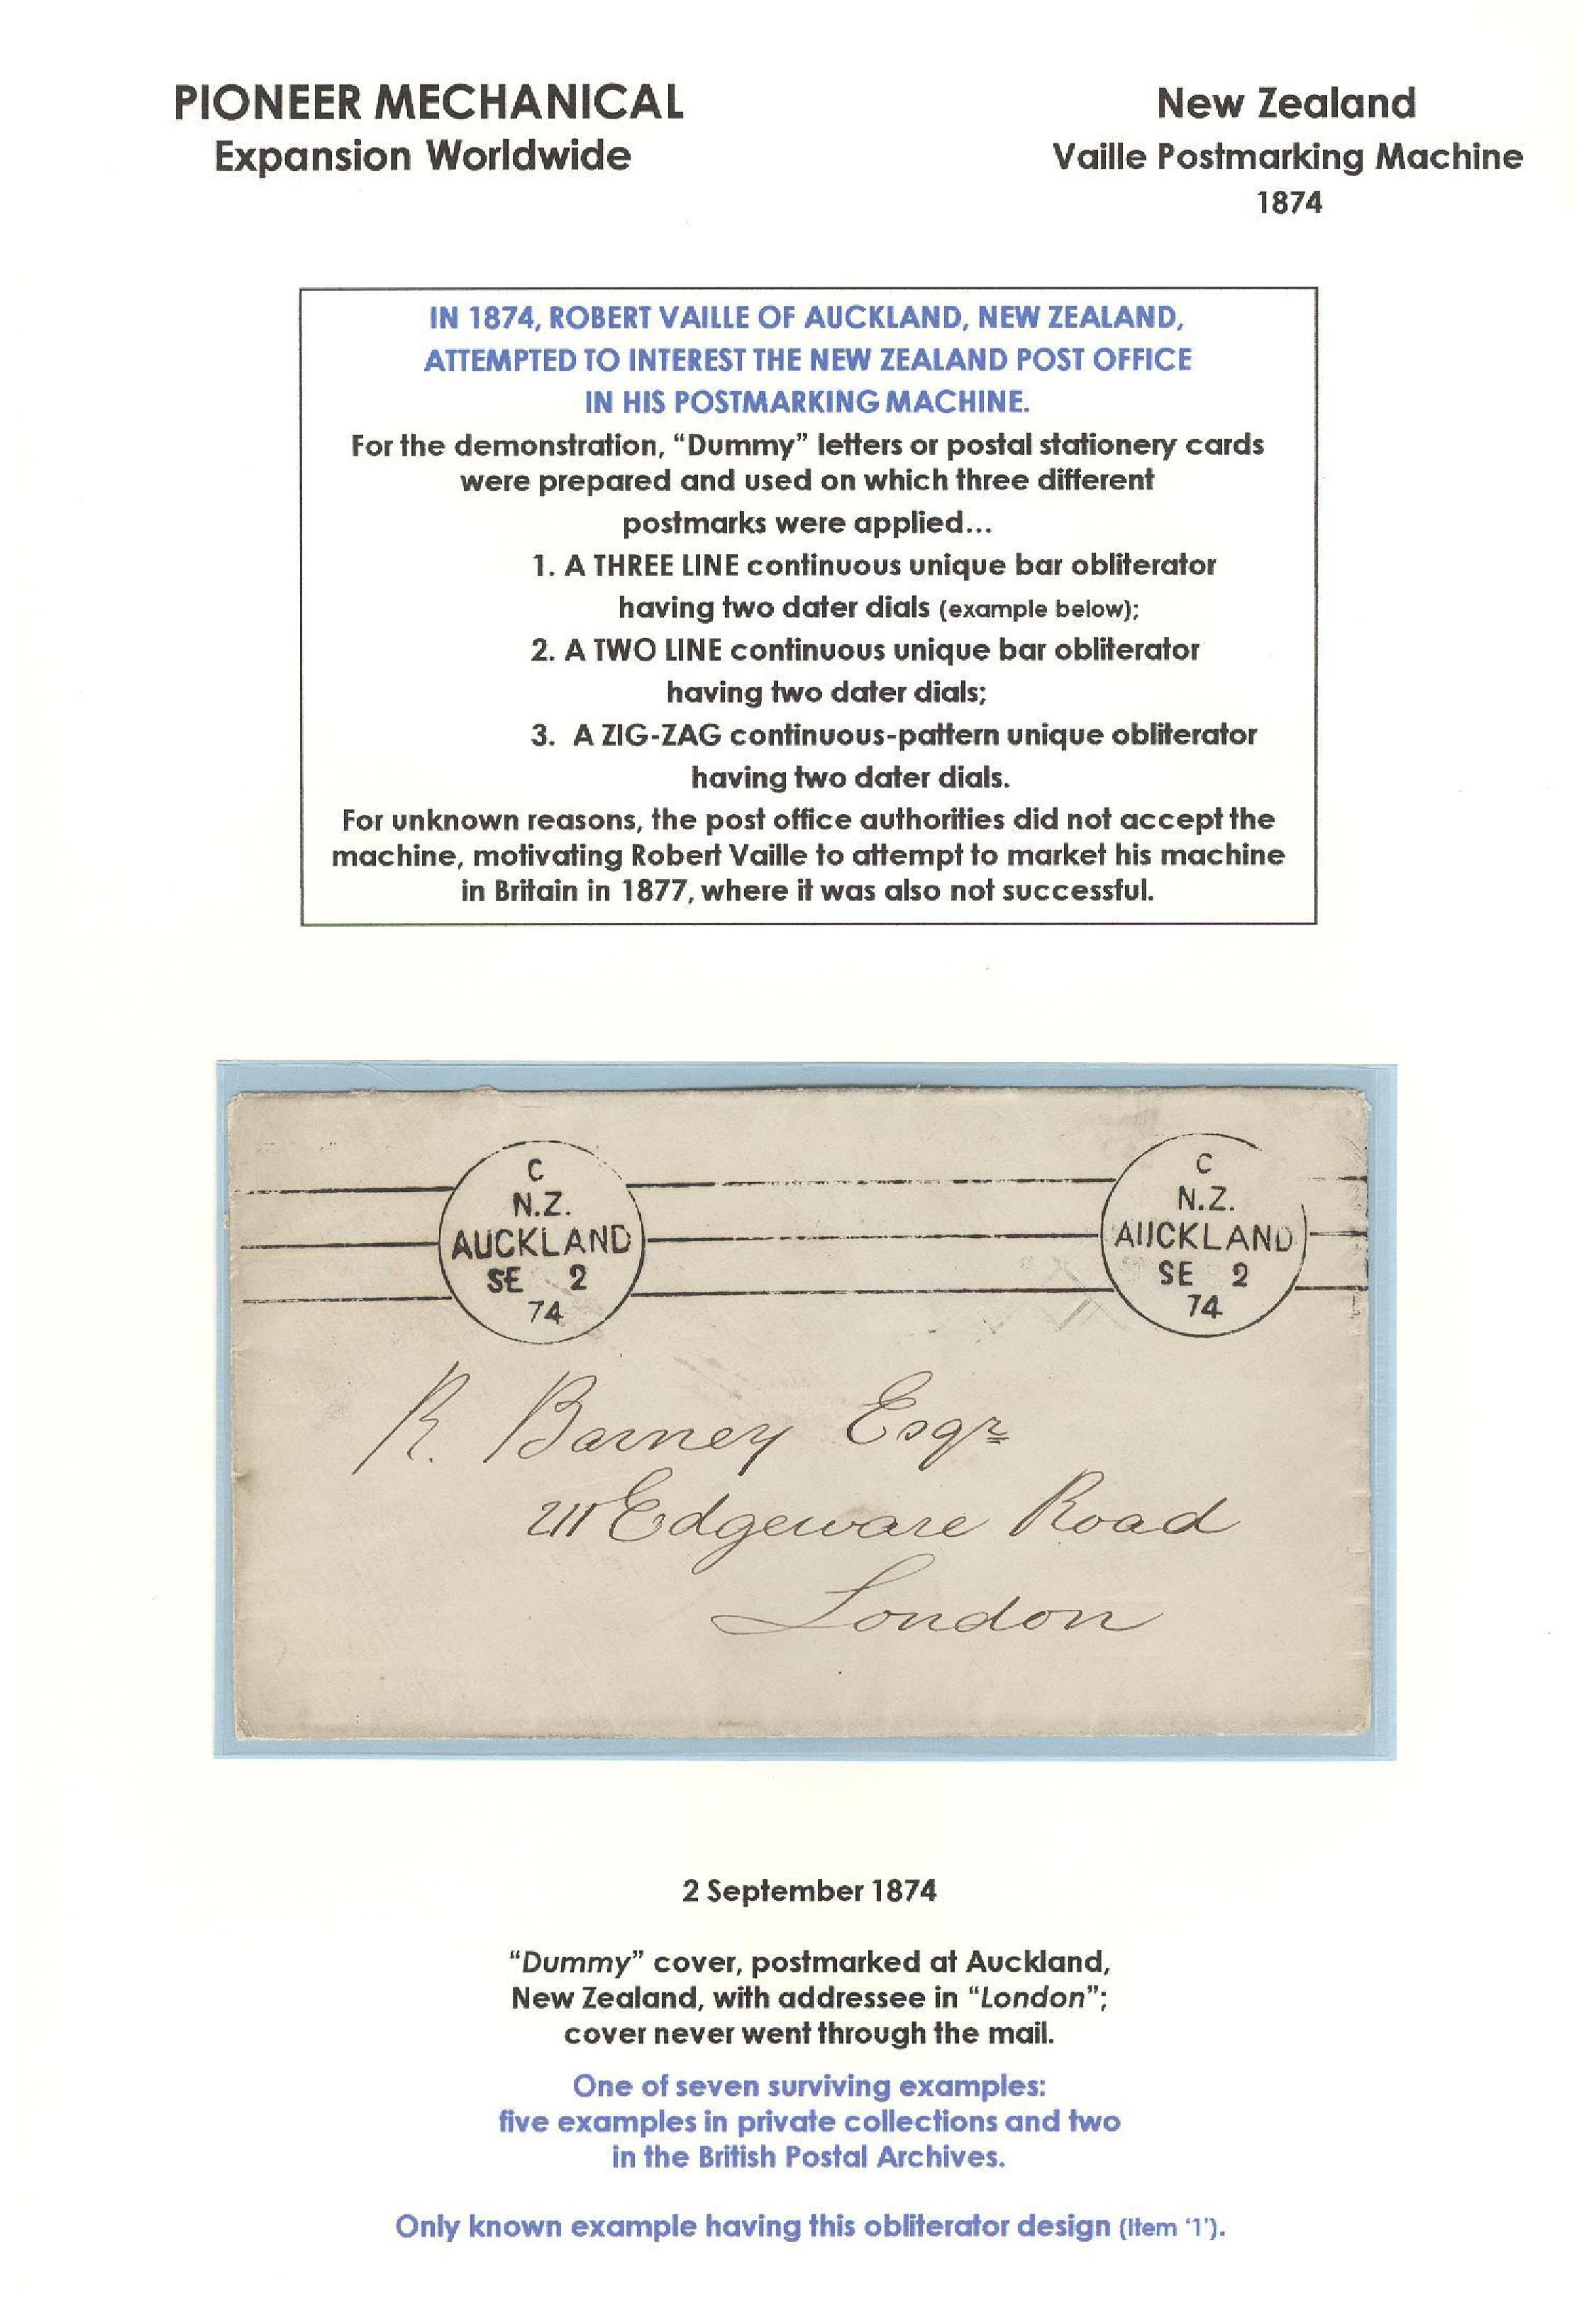 PIONEER MECHANICAL
Expansion Worldwide
New Zealand
Vaille Postmarking Machine
1874
IN 1874, ROBERT VAILLE OF AUCKLAND, NEW ZEALAND,
ATTEMPTED TO INTEREST THE NEW ZEALAND POST OFFICE
IN HIS POSTMARKING MACHINE.
For the demonstration, “Dummy” letters or postal stationery cards
were prepared and used on which three different
postmarks were applied...
1. A THREE LINE continuous unique bar obliterator
having two dater dials (example below);
2. A TWO LINE continuous unique bar obliterator
having two dater dials;
3. A ZIG-ZAG continuous-pattern unique obliterator
having two dater dials.
For unknown reasons, the post office authorities did not accept the
machine, motivating Robert Vaille to attempt to market his machine
in Britain in 1877, where it was also not successful.
C
N.Z.
AUCKLAND
SE 2
74
C
N.Z.
AUCKLAND
SE 2
74
R. Barney Esqr
211 Edgeware Road
London
2 September 1874
“Dummy” cover, postmarked at Auckland,
New Zealand, with addressee in “London”;
cover never went through the mail.
One of seven surviving examples:
five examples in private collections and two
in the British Postal Archives.
Only known example having this obliterator design (Item ‘1’).